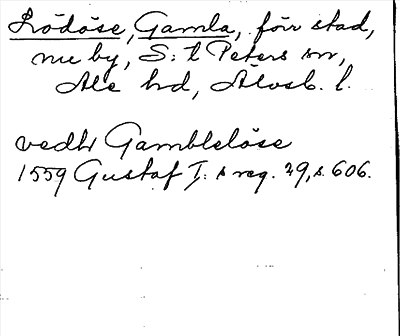 Lödöse, Gamla, förr stad,
nu by, S:t Peters sn,
Ale hd, Älvsb. l.
vedh Gambleløse
1559 Gustaf I:s reg. 29, s. 606.